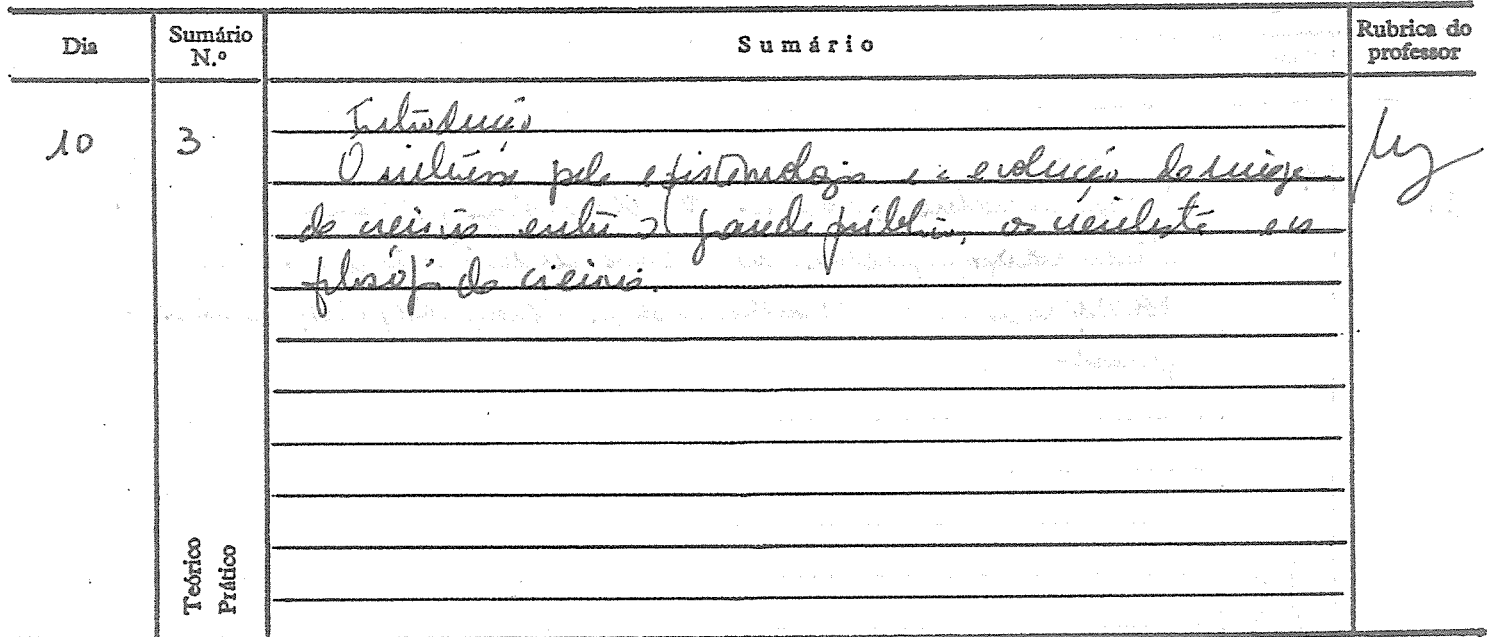 Dia
Sumário N.º
Sumário
Rubrica do professor
10
3
Introdução
O interesse pela epistemologia e a evolução da imagem
da ciência entre o grande público, os cientistas e os
filósofos da ciência.
Teórico
Prático